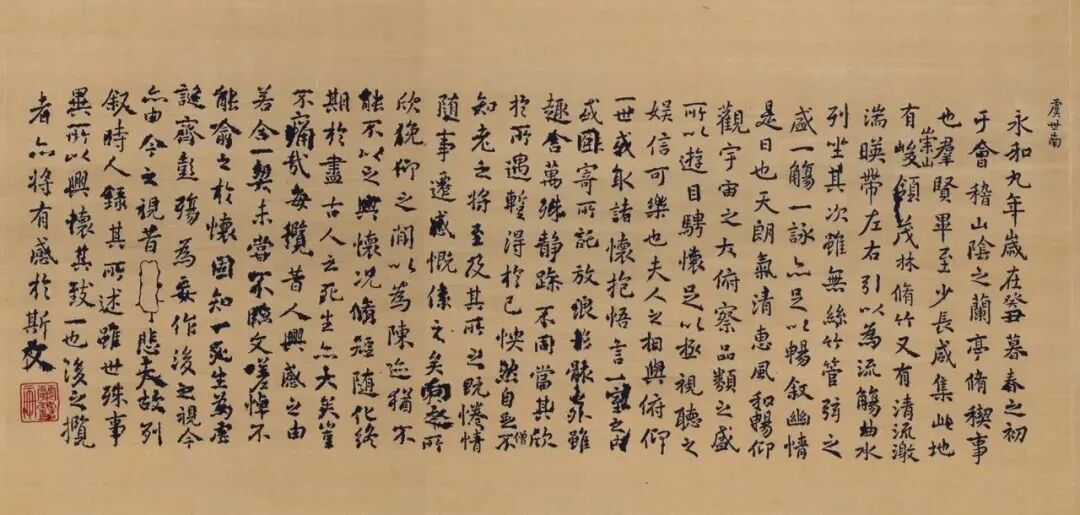 虞世南
永和九年歲在癸丑暮春之初
于會稽山陰之蘭亭脩稧事
也羣賢畢至少長咸集此地
有崇山峻領茂林脩竹又有清流激
湍暎帶左右引以為流觴曲水
列坐其次雖無絲竹管弦之
盛一觴一詠亦足以暢叙幽情
是日也天朗氣清惠風和暢仰
觀宇宙之大俯察品類之盛
所以遊目騁懷足以極視聽之
娛信可樂也夫人之相與俯仰
一世或取諸懷抱悟言一室之內
或因寄所託放浪形骸之外雖
趣舍萬殊静躁不同當其欣
於所遇蹔得於己怏然自足不
僧
知老之將至及其所之既惓情
隨事遷感慨係之矣向之所
欣俛仰之閒以為陳迹猶不
能不以之興懷況脩短隨化終
期於盡古人云死生亦大矣豈
不痛哉每攬昔人興感之由
若合一契未嘗不臨文嗟悼不
能喻之於懷固知一死生為虛
誕齊彭殤為妄作後之視今
亦由今之視昔悲夫故列
叙時人錄其所述雖世殊事
異所以興懷其致一也後之攬
者亦將有感於斯文